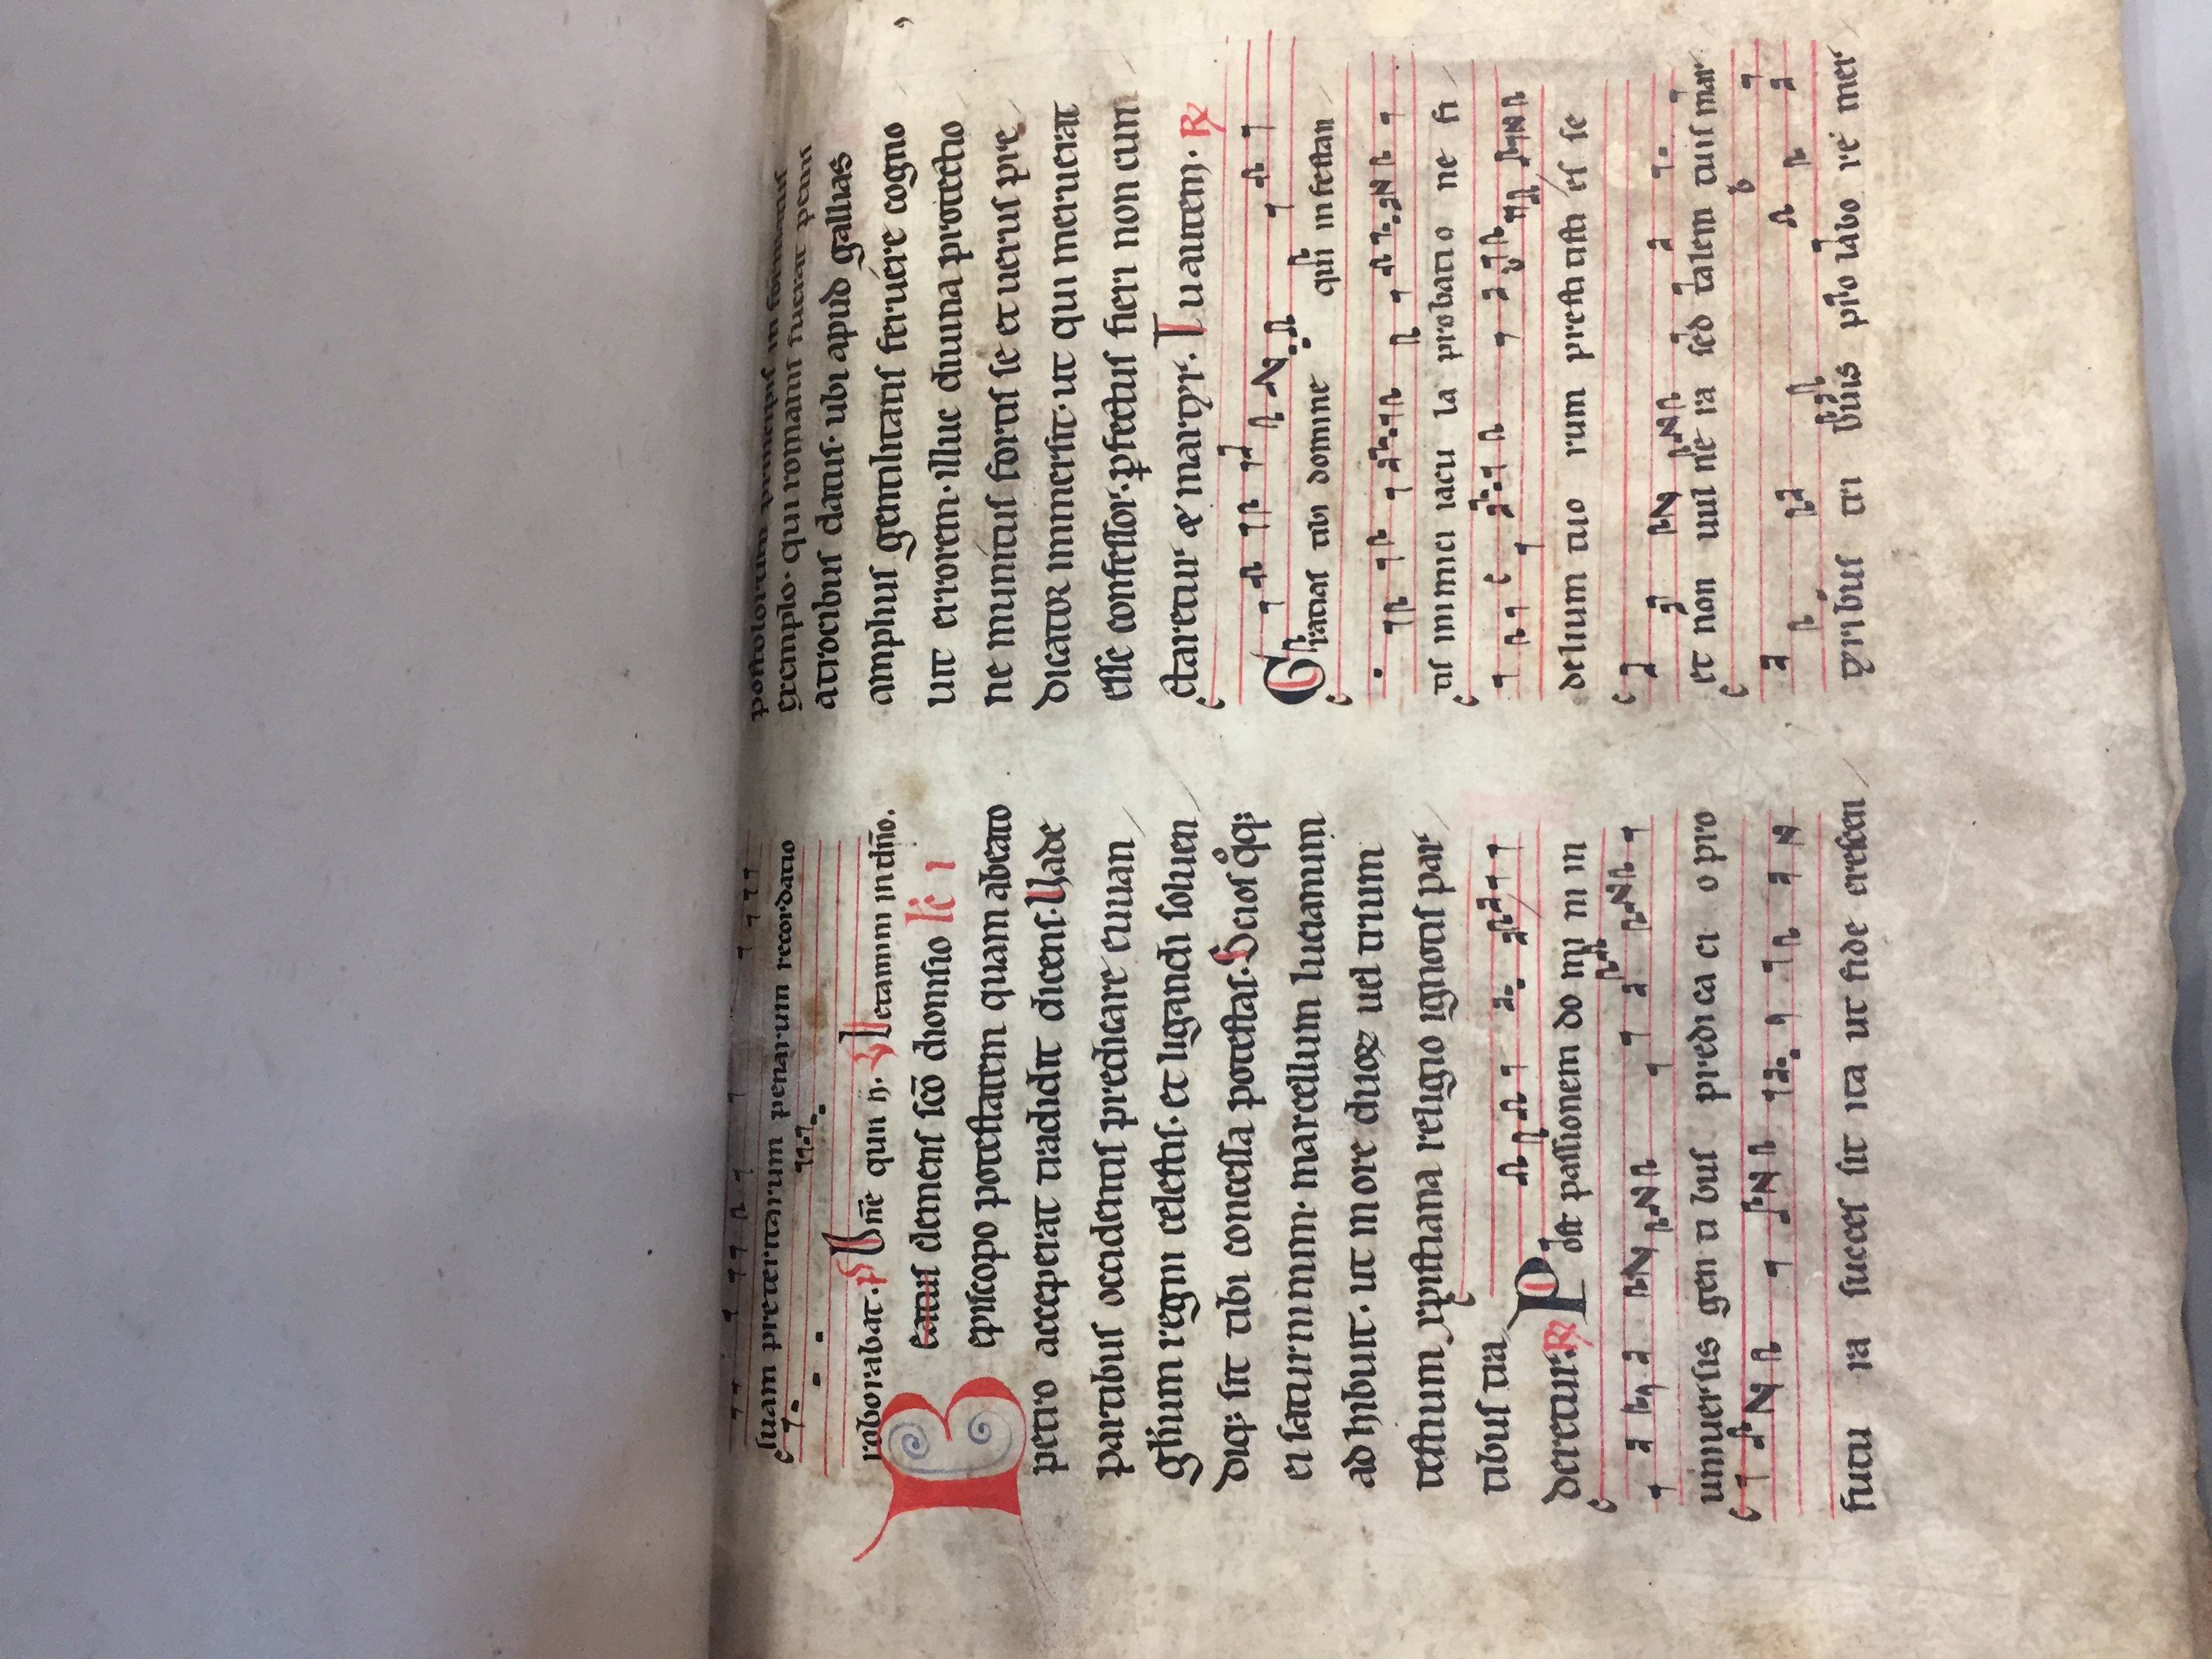 suam preteritarum penarum recordatio
roborabat. ps Dñe qui h. V Letamini in dño.
Beatus clemens scō dionisio lc̄ i
episcopo potestatem quam abeato
petro acceperat tradidit dicens. Vade
partibus occidentis predicare euuan
głium regni celestis. et ligandi soluen
diq; sit tibi concessa potestas. Socios qͦq;
ei saturninum. marcellum lucianum
adhibuit. ut more duoꝝ uel trium
testium xpistiana religio ignotis par
tibus tra
deretur. ℟ Post passionem do mi ni in
uniuersis gen ti bus predi ca ci o pro
futu ra succes sit ita ut fide crescen
postolorum principis in formatus
exemplo. qui romanis fuerat penis
atrocibus datus. ubi apud gallias
amplius gentilitatis feruére cogno
uit errorem. illuc diuina protectio
ne munitus fortis se et uerus pre
dicator immersit. ut qui meruerat
esse confessor. ꝑfectus fieri non cun
ctaretur & martyr. Tu autem. ℟
Gratias tibi domine qui infestan
tis inimici iacu la probatio ne fi
delium tuo rum prestitisti es se
et non uul ne ra sed talem tuis mar
tyribus tri buis pro labo re mer